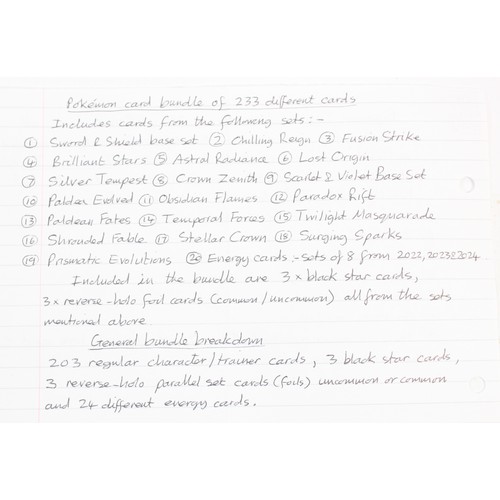 Pokémon card bundle of 233 different cards
Includes cards from the following sets:-
① Sword & Shield base set ② Chilling Reign ③ Fusion Strike
④ Brilliant Stars ⑤ Astral Radiance ⑥ Lost Origin
⑦ Silver Tempest ⑧ Crown Zenith ⑨ Scarlet & Violet Base Set
⑩ Paldea Evolved ⑪ Obsidian Flames ⑫ Paradox Rift
⑬ Paldean Fates ⑭ Temporal Forces ⑮ Twilight Masquarade
⑯ Shrouded Fable ⑰ Stellar Crown ⑱ Surging Sparks
⑲ Prismatic Evolutions ⑳ Energy cards - sets of 8 from 2022, 2023 & 2024
Included in the bundle are 3 x black star cards,
3 x reverse-holo foil cards (common/uncommon) all from the sets
mentioned above
General bundle breakdown
203 regular character/trainer cards, 3 black star cards,
3 reverse-holo parallel set cards (foils) uncommon or common
and 24 different energy cards.